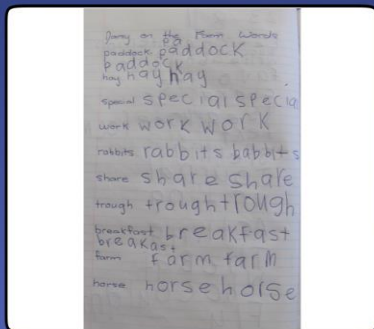 on the Farm Words
paddock paddock
paddock
hay hay hay
special special specia
work work work
rabbits rabbits babbits
share share share
trough trough trough
breakfast breakfast
breakast
farm farm farm
horse horse horse